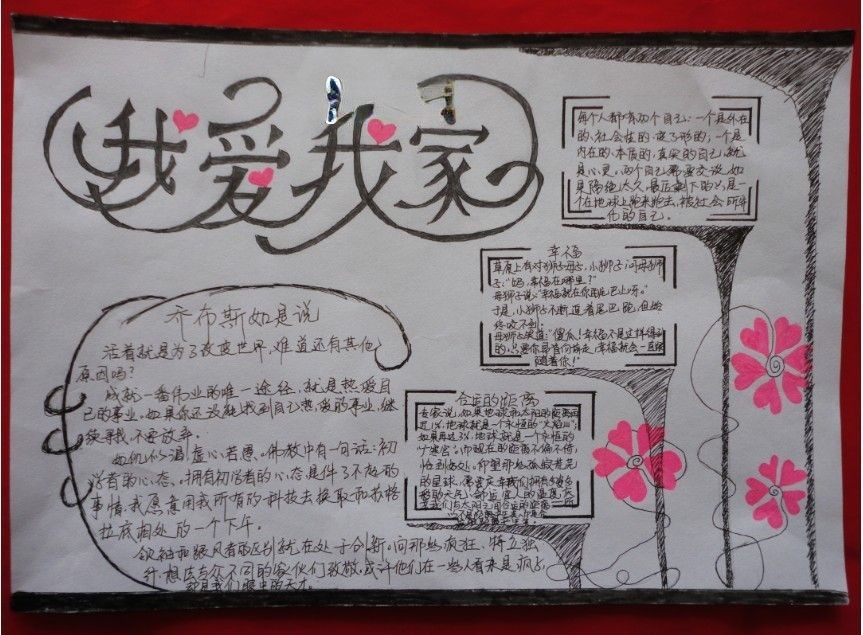 我爱我家
每个人都有两个自己：一个是外在
的、社会性的、变了形的；一个是
内在的、本质的、真实的自己，就
是心灵。两个自己需要交谈，如
果隔绝太久，最后剩下的只是一
个在地球上跑来跑去，被社会所
他的自己。
幸福
草原上有对狮子母子，小狮子问母狮
子：“妈，幸福在哪里？”
母狮子说：“幸福就在你的尾巴上呀。”
于是，小狮子不断追着尾巴跑，但始
终咬不到。
母狮子笑道：“傻瓜！幸福不是这样得到
的，只要你昂首向前走，幸福就会一直
随着你！”
齐布斯如是说
活着就是为了改变世界，难道还有其他
原因吗？
成就一番伟业的唯一途径，就是热爱自
己的事业。如果你还没能找到自己热爱的事业，继
续寻找，不要放弃。
求知若渴，虚心若愚。佛教中有一句话：初
学者的心态。拥有初学者的心态是件了不起的
事情。我愿意用我所有的科技去换取和苏格
拉底相处的一个下午。
领袖和跟风者的区别就在处于创新。向那些疯狂、特立独
行、想法与众不同的家伙们致敬，或许他们在一些人看来是疯子，
却是我们眼中的天才。
合适的距离
专家说，如果地球和太阳的距离再
近1%，地球就是个永恒的“火焰山”；
如果再远3%，地球就是一个永恒的
“广寒宫”。而现在的距离不偏不倚，
恰到好处。仰望那些孤寂荒芜
的星球，